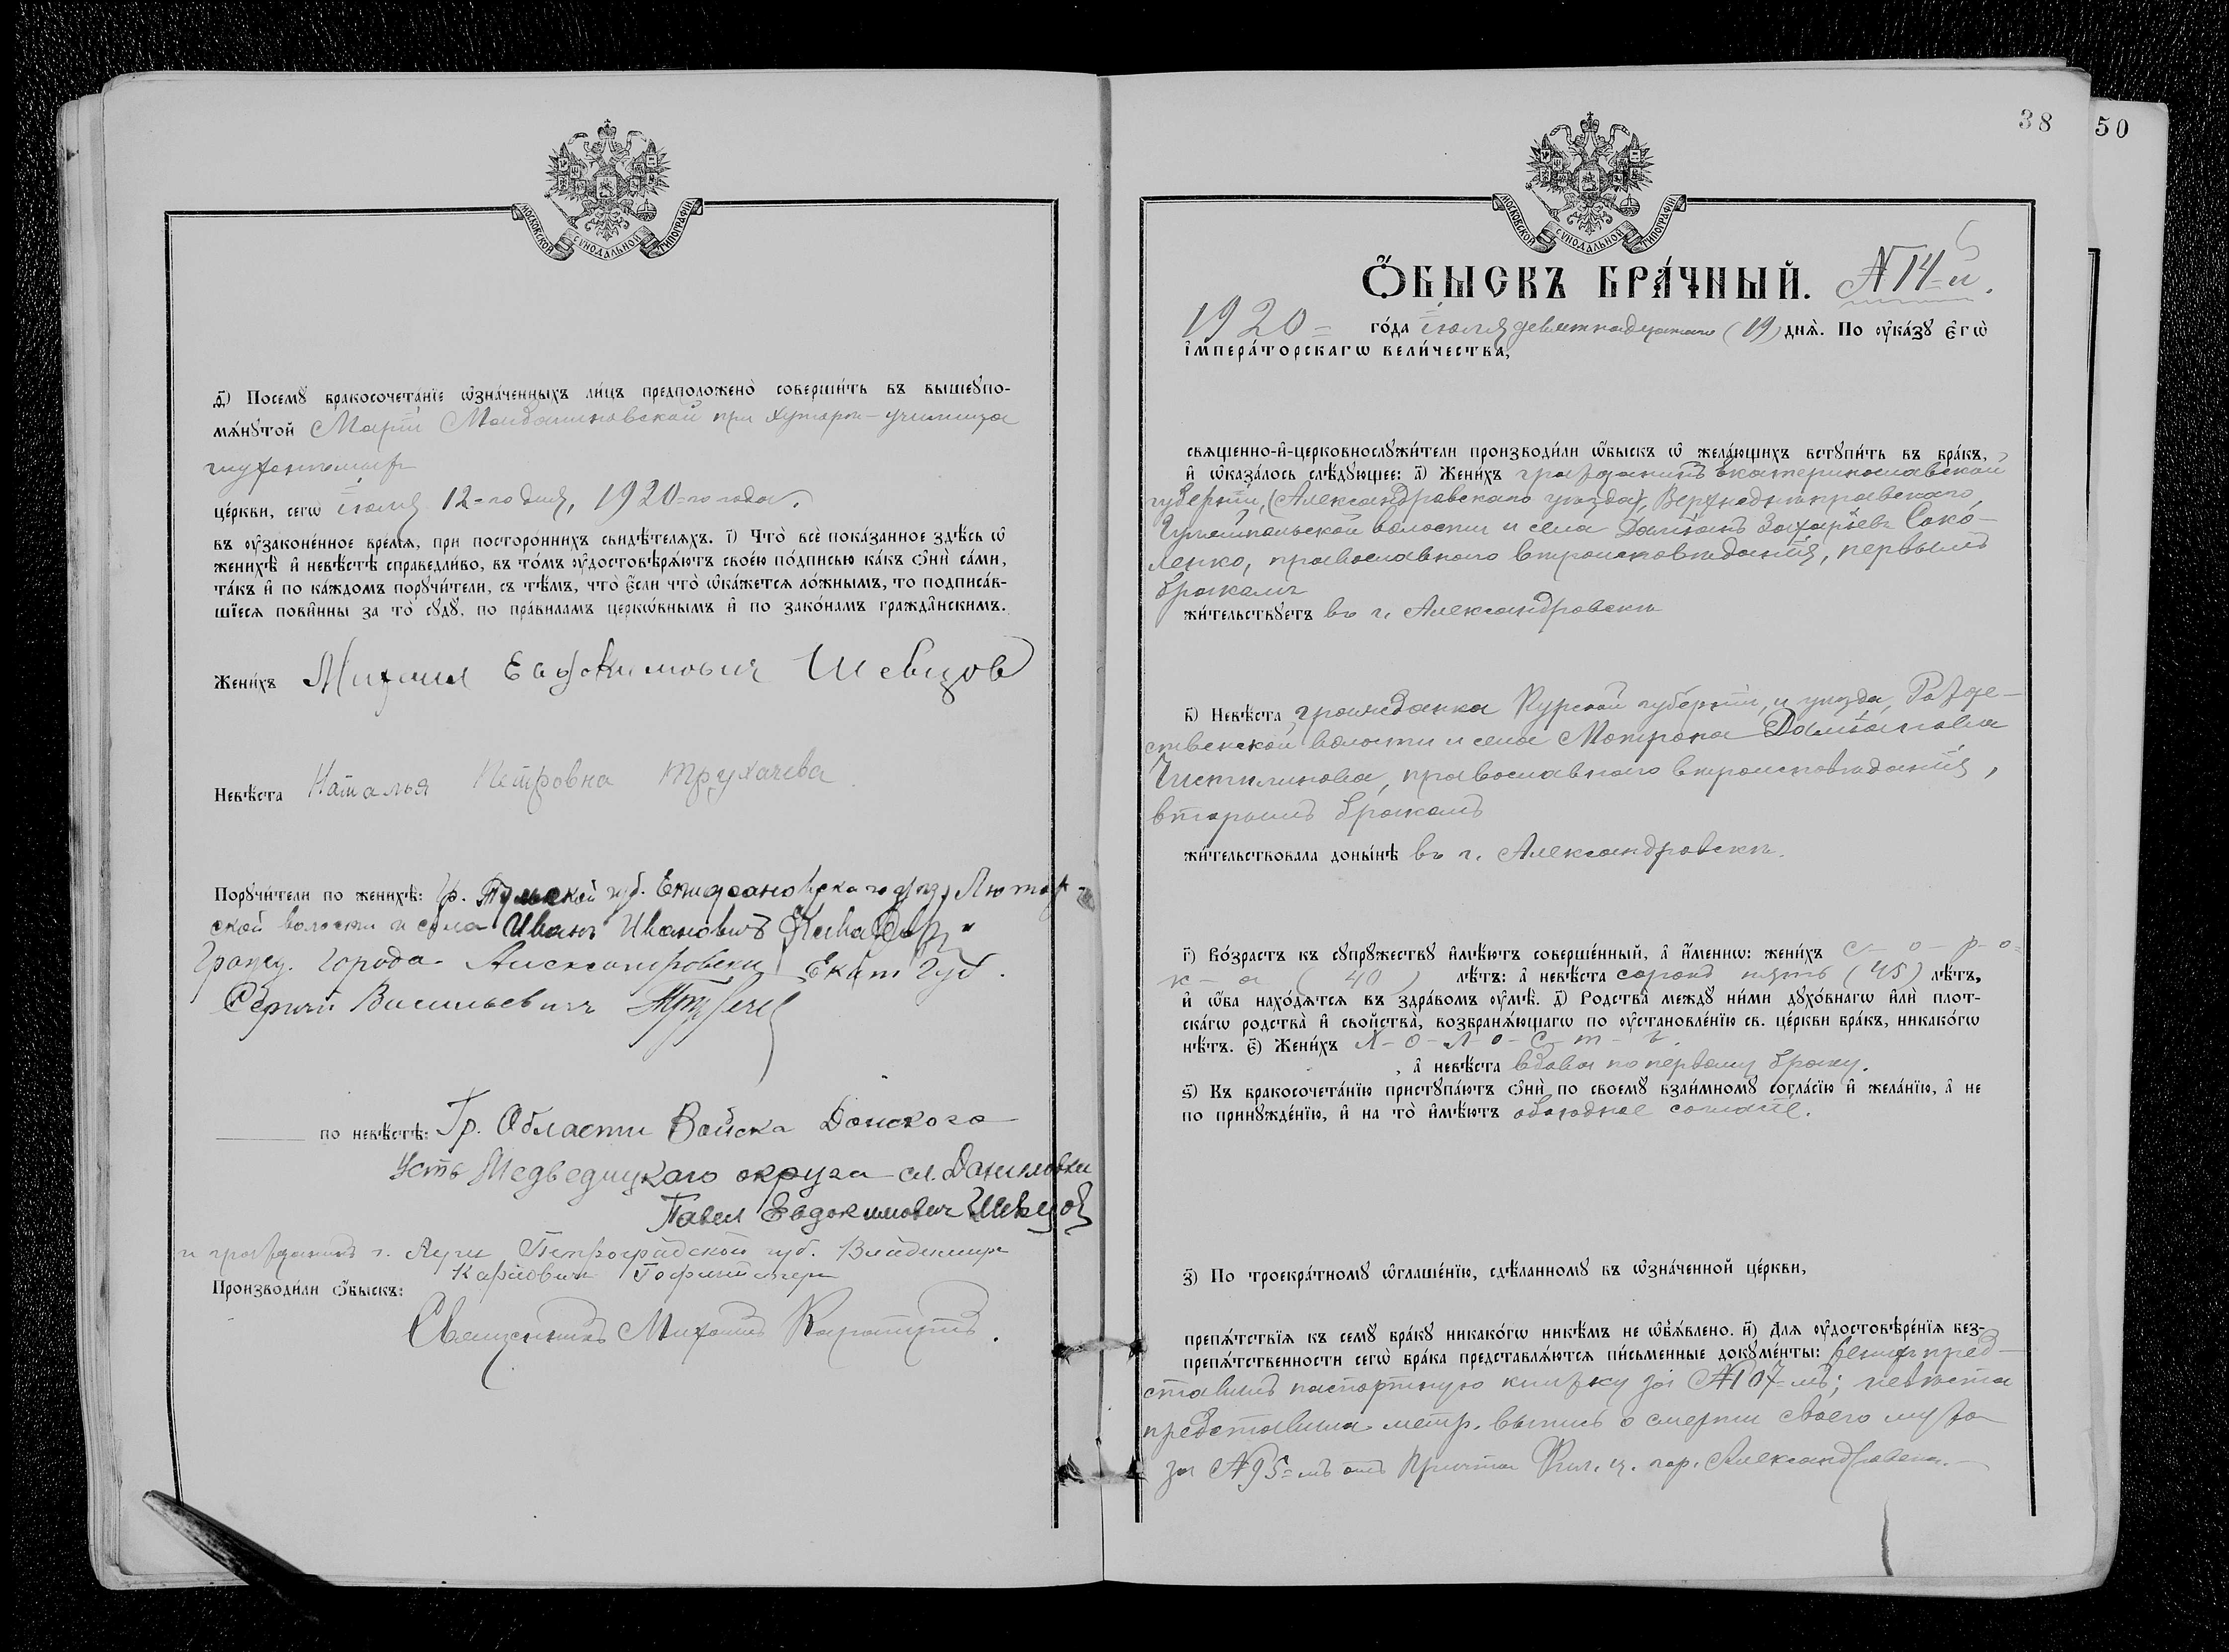 МОСКОВСКОЙ СѴНОДАЛЬНОЙ ТИПОГРАФІИ
д҃) Посемꙋ бракосочета́нїе ѡ҆зна́ченныхъ ли́цъ предположено̀ соверши́ть въ вышеꙋпо-
мѧ́нꙋтой Маріи Магдалиновской при хуторѣ-училища
глухонѣмыхъ
це́ркви, сегѡ̀ іюля 12=го дня, 1920=го года.
въ ᲂу҆зако́ненное вре́мѧ, при посторо́ннихъ свидѣ́телѧхъ. і҃) Что̀ всѐ пока́занное здѣ́сь ѡ҆
женихѣ̀ и҆ невѣ́стѣ справедли́во, въ то́мъ ᲂу҆достовѣрѧ́ютъ свое́ю по́дписью ка́къ ѻ҆нѝ са́ми,
та́къ и҆ по ка́ждомъ порꙋчи́тели, съ тѣ́мъ, что̀ є҆́сли что̀ ѡ҆ка́жетсѧ ло́жнымъ, то подписа́в-
шїесѧ пови́нны за то̀ сꙋдꙋ̀, по пра́виламъ церкѡ́внымъ и҆ по зако́намъ гражда̑нскимъ.
Жени́хъ Михаил Евдокимович Шевцов
Невѣ́ста Наталья Петровна Трухачева
Порꙋчи́тели по женихѣ̀: Гр. Тульской губ. Епифановскаго уѣзд. Лютор-
ской волости и села Иванъ Ивановичъ
Гражд. города Александровска Екат губ.
Сергѣй Васильевичъ
по невѣ́стѣ: Гр. Области Войска Донского
Усть Медведицкаго округа сл. Даниловки
Павел Евдокимович Шевцов
и гражданинъ г. Луги Петроградской губ. Владимиръ
Карловичъ Гофмейстеръ
Производи́ли ѻ҆́быскъ:
Священникъ Михаилъ
38
50
МОСКОВСКОЙ СѴНОДАЛЬНОЙ ТИПОГРАФІИ
Ѻ҆́БЫСКЪ БРА́ЧНЫЙ. № 14-й.
1920= го́да іюля девятнадцатаго (19) днѧ̀. По ᲂу҆ка́зꙋ є҆гѡ̀
і҆мпера́торскагѡ вели́чества,
свѧще́нно-и҆-церковнослꙋжи́тели производи́ли ѻ҆́быскъ ѡ҆ жела́ющихъ встꙋпи́ть въ бра́къ,
и҆ ѡ҆каза́лось слѣ́дꙋющее: а҃) Жени́хъ гражданинъ Екатеринославской
губерніи, (Александровскаго уѣзда), Верхнеднѣпровскаго
Гуляйпольской волости и села Даміанъ Захаріевъ Соко-
ленко, православнаго вѣроисповѣданія, первымъ
бракомъ
жи́тельствꙋетъ въ г. Александровскѣ
в҃) Невѣ́ста гражданка Курской губерніи, и уѣзда, Рожде-
ственской волости и села Матрона Даміановна
Чистилинова, православнаго вѣроисповѣданія,
вторымъ бракомъ
жи́тельствовала доны́нѣ въ г. Александровскѣ.
г҃) Во́зрастъ къ сꙋпрꙋ́жествꙋ и҆мѣ́ютъ соверше́нный, а҆ и҆́меннѡ: жени́хъ с-о-р-о-
к-а (40) лѣ́тъ: а҆ невѣ́ста сорокъ пять (45) лѣ́тъ,
и҆ ѻ҆́ба нахо́дѧтсѧ въ здра́вомъ ᲂу҆мѣ̀. д҃) Родства̀ междꙋ̀ ни́ми дꙋхо́внагѡ и҆лѝ плот-
ска́гѡ родства̀ и҆ сво́йства, возбранѧ́ющагѡ по ᲂу҆становле́нїю св. це́ркви бра́къ, никако́гѡ
нѣ́тъ. є҃) Жени́хъ х-о-л-о-с-т-ъ.
, а҆ невѣ́ста вдова по первому браку.
ѕ҃) Къ бракосочета́нїю пристꙋпа́ютъ ѻ҆нѝ по своемꙋ̀ взаи́мномꙋ согла́сїю и҆ жела́нїю, а҆ не
по принꙋжде́нїю, и҆ на то̀ и҆мѣ́ютъ обоюдное согласіе.
з҃) По троекра́тномꙋ ѡ҆глаше́нїю, сдѣ́ланномꙋ въ ѡ҆зна́ченной це́ркви,
препѧ́тствїѧ къ семꙋ̀ бра́кꙋ никако́гѡ никѣ́мъ не ѡ҆б̾ѧ́влено. и҃) Длѧ̀ ᲂу҆достовѣре́нїѧ без-
препѧ́тственности сегѡ̀ бра́ка представлѧ́ютсѧ пи́сьменные докꙋме́нты: женихъ пред-
ставилъ паспортную книжку за № 107=мъ; невѣста
представила метр. выпись о смерти своего мужа
за № 95=мъ отъ Причта ц. гор. Александровска.